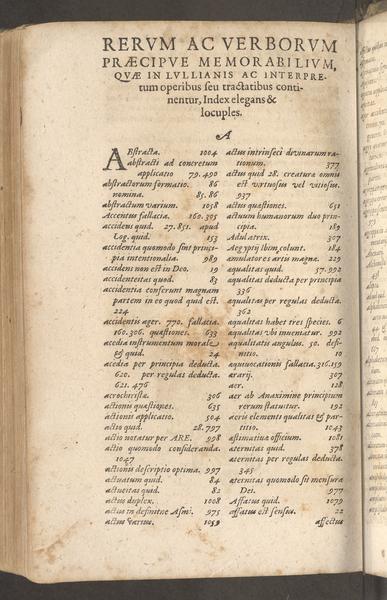 RERVM AC VERBORVM
PRÆCIPVE MEMORABILIVM,
QVÆ IN LVLLIANIS AC INTERPRE-
tum operibus seu tractatibus conti-
nentur, Index elegans &
locuples.
A
ABstracta. 1004
abstracti ad concretum
applicatio 79.490
abstractorum formatio. 86
nomina. 85.86
abstractum varium. 1058
Accentus fallacia. 160.305
accidens quid. 27.851. apud
Log. quid. 153
accidentia quomodo sint princi-
pia intentionalia. 989
accidens non est in Deo. 19
accidenteitas quod. 83
accidentia conserunt magnam
partem in eo quod quid est.
224
accidentis ager. 770. fallacia.
160.306. quæstiones. 633
acedia instrumentum morale
& quid. 24
acedia per principia deducta.
620. per regulas deducta.
621.476
acrochirista. 306
actionis quæstiones. 635
actionis applicatio. 504
actio quid. 28.797
actio notatur per ARE. 998
actio quomodo consideranda.
1047
actionis descriptio optima. 997
actuatum quid. 84
actueitas quid. 82
actus duplex. 1008
actus in definitione 975
actus varius. 1059
actus intrinseci divinarum ra-
tionum. 377
actus quid 28. creatura omnis
est virtuosus vel vitiosus.
937
actus quæstiones. 651
actuum humanorum duo prin-
cipia. 189
Adulatrex. 307
Aegyptij ibim colunt. 184
æmulatores artis magnæ. 229
æqualitas quid. 57.992
æqualitas deducta per principia
336
æqualitas per regulas deducta.
362
æqualitas habet tres species. 6
æqualitas vbi inuentatur. 992
æqualitatis angulus. 50. defi-
nitio. 10
æquiuocationis fallacia. 316.159
ærarij. 307
aer. 128
aer ab Anaximine principium
rerum statuitur. 192
aeris elementi qualitas & par-
titio. 1043
æstimatiua officium. 1081
æternitas quid. 378
æternitas per regulas deducta.
345
æternitas quomodo sit mensura
Dei. 977
Affatus quid. 1079
affatus est sensus. 22
affectus